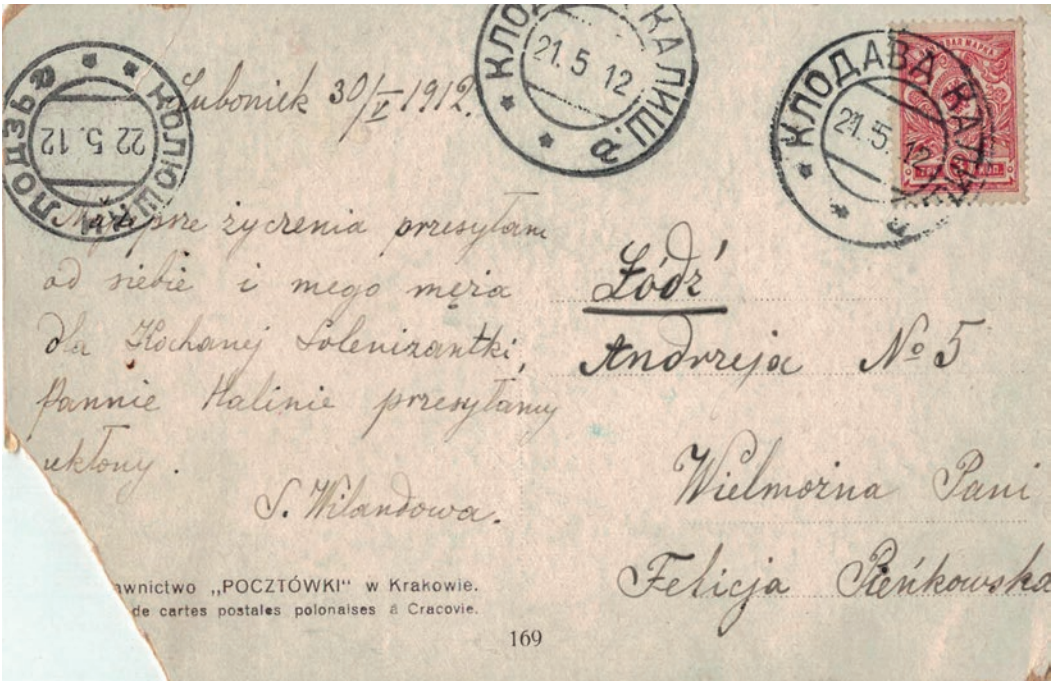 КЛОДАВА КАЛИШ.
21.5 12
а
КЛОДАВА КАЛИШ.
21.5.12
а
КОЛЮШКИ ЛОДЗЬ
22 5.12
а
Luboniek 30/V 1912.
Najlepsze życzenia przesyłam
od siebie i mego męża
dla Kochanej Solenizantki,
Pannie Halinie przesyłamy
ukłony.
S. Wilandowa.
Łódź
Andrzeja № 5
Wielmożna Pani
Felicja Pieńkowska
awnictwo „POCZTÓWKI“ w Krakowie.
de cartes postales polonaises à Cracovie.
169